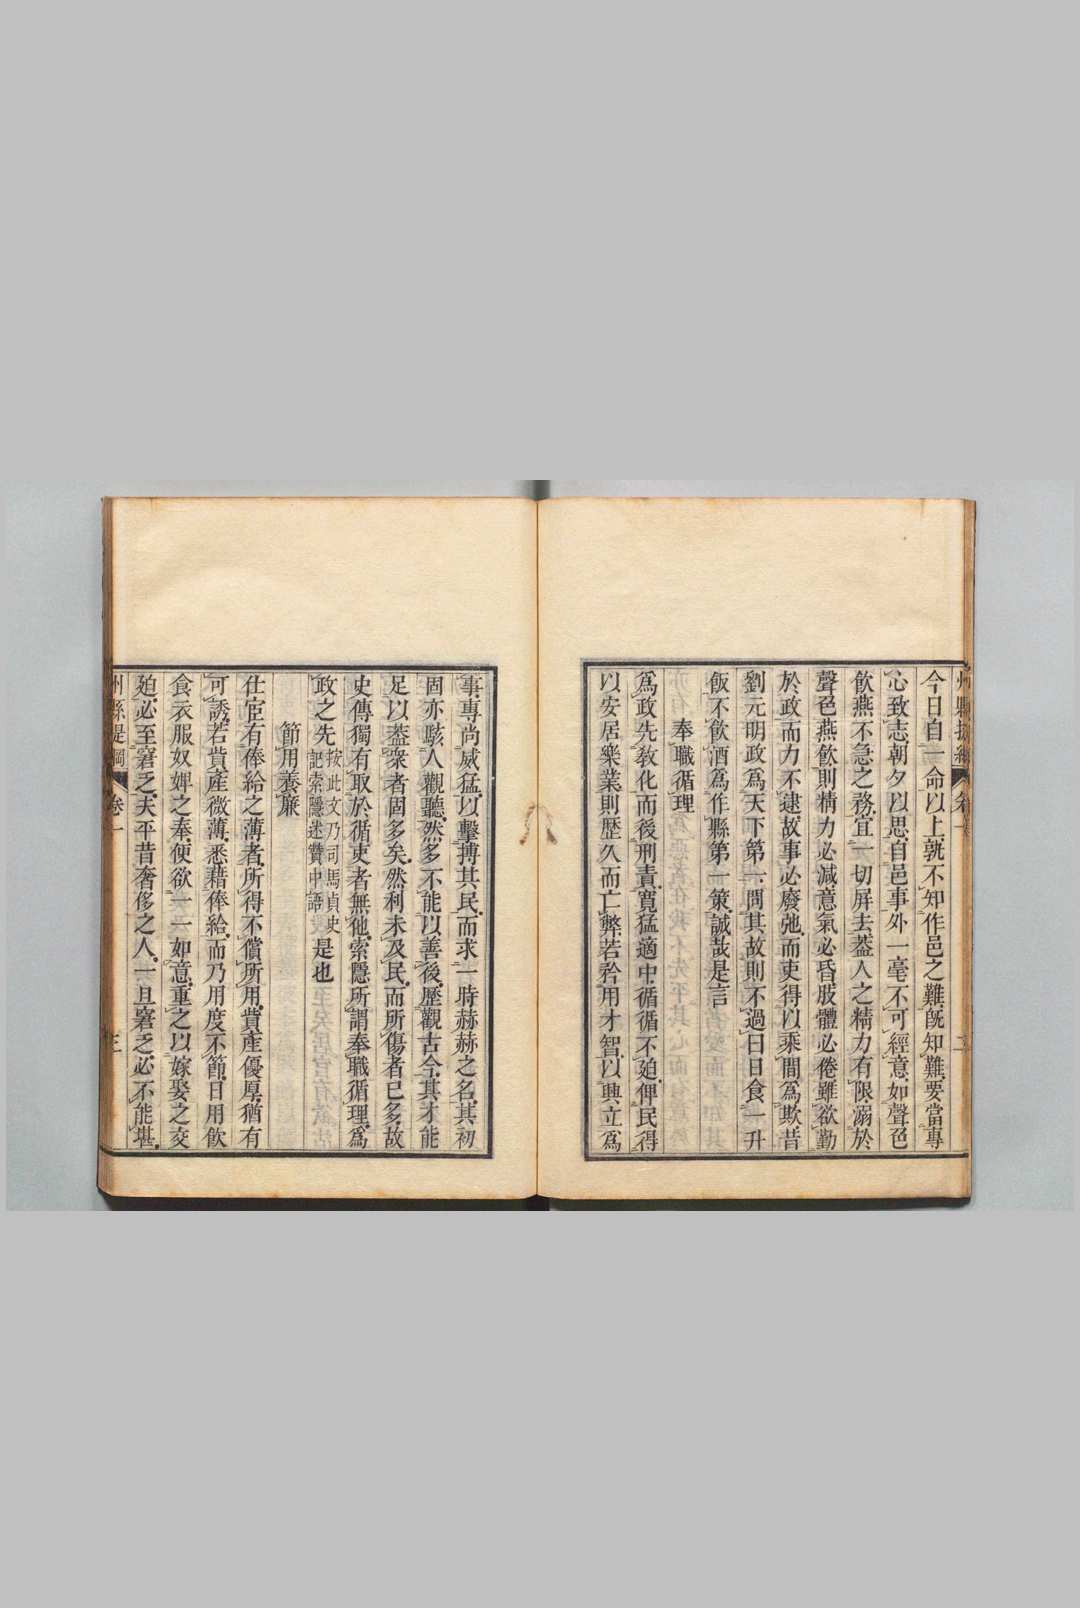 今日自一命以上孰不知作邑之難既知難要當專
心致志朝夕以思自邑事外一毫不可經意如聲色
飲燕不急之務宜一切屏去蓋人之精力有限溺於
聲色燕飲則精力必減意氣必昏肢體必倦雖欲勤
於政而力不逮故事必廢弛而吏得以乘間爲欺昔
劉元明政爲天下第一問其故則不過日日食一升
飯不飲酒爲作縣第一策誠哉是言
奉職循理
爲政先教化而後刑責寬猛適中循循不廹俾民得
以安居樂業則歷久而亡弊若矜用才智以興立爲
事專尚威猛以擊搏其民而求一時赫赫之名其初
固亦駭人觀聽然多不能以善後歷觀古今其才能
足以蓋衆者固多矣然利未及民而所傷者已多故
史傳獨有取於循吏者無他索隱所謂奉職循理爲
政之先按此文乃司馬貞史記索隱述贊中語是也
節用養廉
仕宦有俸給之薄者所得不償所用貲產優厚猶有
可誘若貲產微薄悉藉俸給而乃用度不節日用飲
食衣服奴婢之奉便欲一一如意重之以嫁娶之交
廹必至窘乏夫平昔奢侈之人一旦窘乏必不能堪
州縣提綱 卷一 三